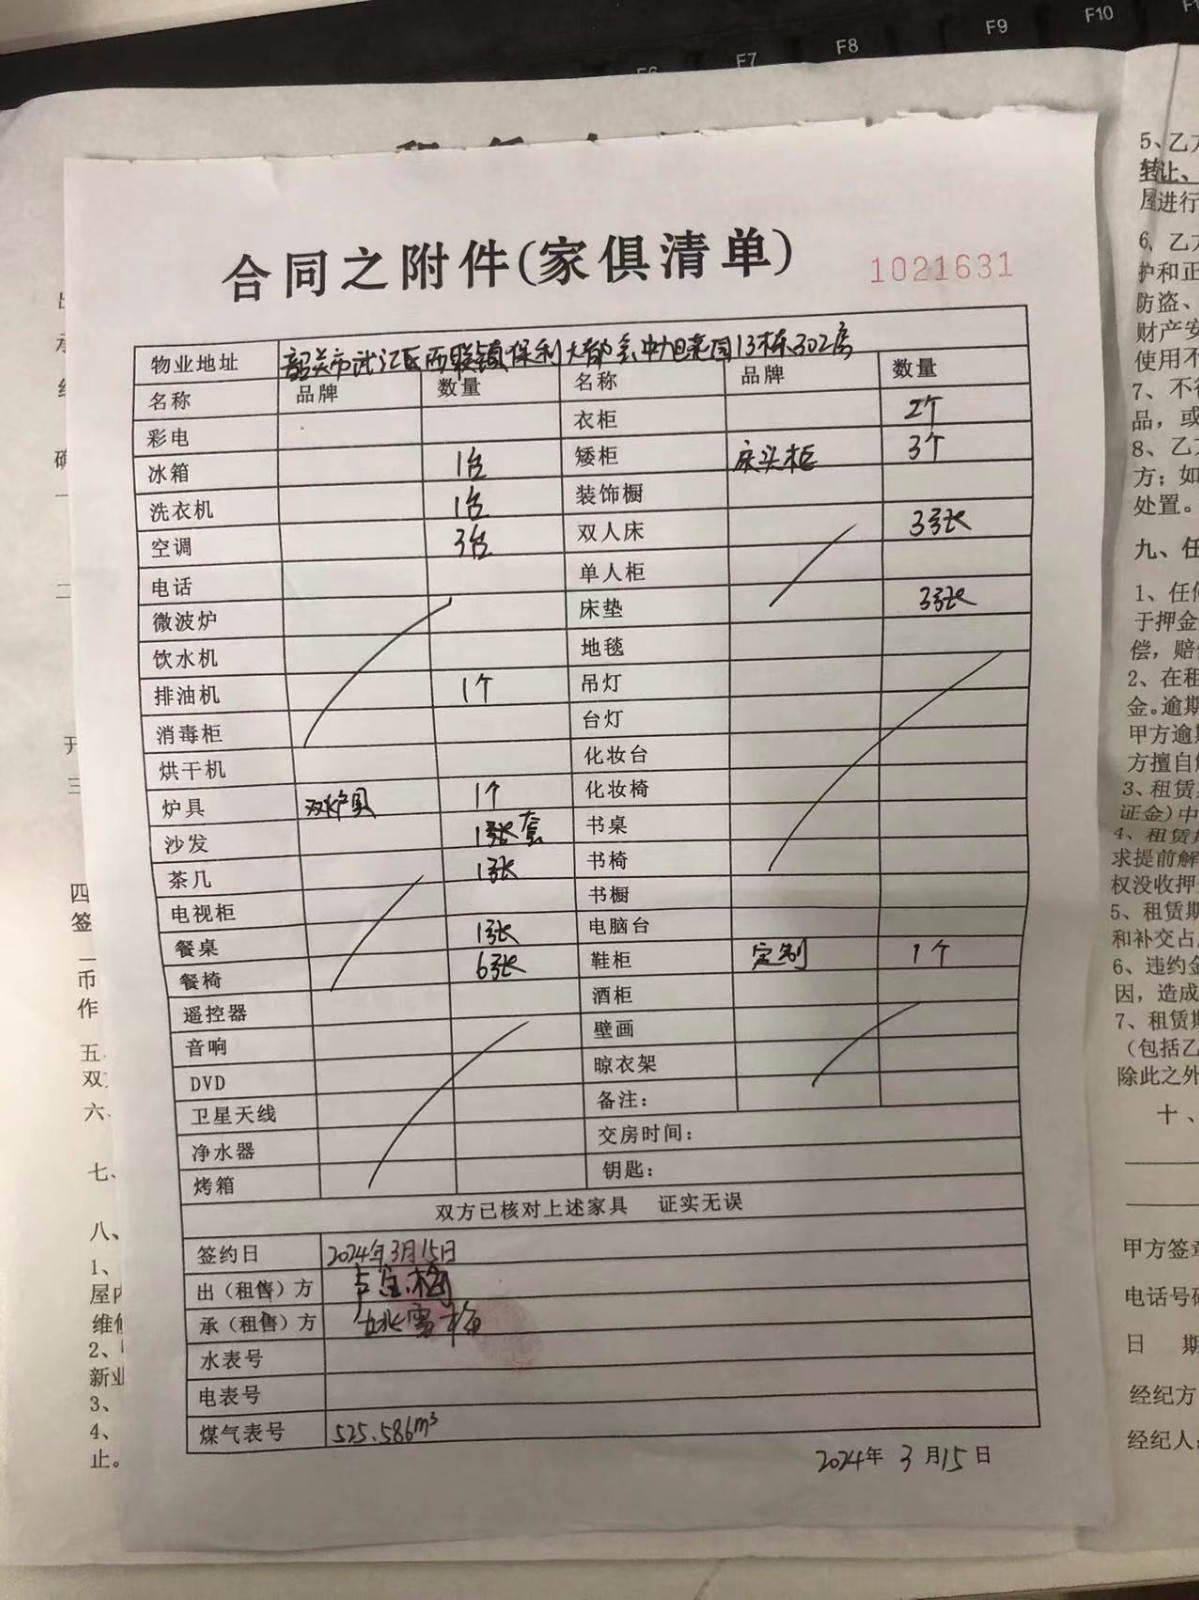 F6 F7 F8 F9 F10
合同之附件(家俱清单) 1021631
物业地址 韶关市武江区西联镇保利大都会中旭景园13栋302房
名称 品牌 数量 名称 品牌 数量
彩电 衣柜 2个
冰箱 1台 矮柜 床头柜 3个
洗衣机 1台 装饰橱
空调 3台 双人床 3张
电话 单人柜
微波炉 床垫 3张
饮水机 地毯
排油机 1个 吊灯
消毒柜 台灯
烘干机 化妆台
炉具 双炉具 1个 化妆椅
沙发 1套 书桌
茶几 1张 书椅
电视柜 书橱
餐桌 1张 电脑台
餐椅 6张 鞋柜 定制 1个
遥控器 酒柜
音响 壁画
DVD 晾衣架
卫星天线 备注：
净水器 交房时间：
烤箱 钥匙：
双方已核对上述家具 证实无误
签约日 2024年3月15日
出（租售）方
承（租售）方 姚雪梅
水表号
电表号
煤气表号 525.586m³
2024年3月15日
四
签
币
作
五、
双
六、
七、
八、
1、
屋内
维修
2、
新业
3、
4、
止。
5、乙方
转让、
屋进行
6、乙方
护和正
防盗、
财产安
使用不
7、不得
品，或
8、乙方
方；如
处置。
九、任
1、任何
于押金
偿，赔偿
2、在租
金。逾期
甲方逾期
方擅自
3、租赁
证金）中
4、租赁
求提前解
权没收押
5、租赁期
和补交占
6、违约金
因，造成
7、租赁期
（包括乙
除此之外
十、
甲方签章
电话号码
日 期
经纪方
经纪人：